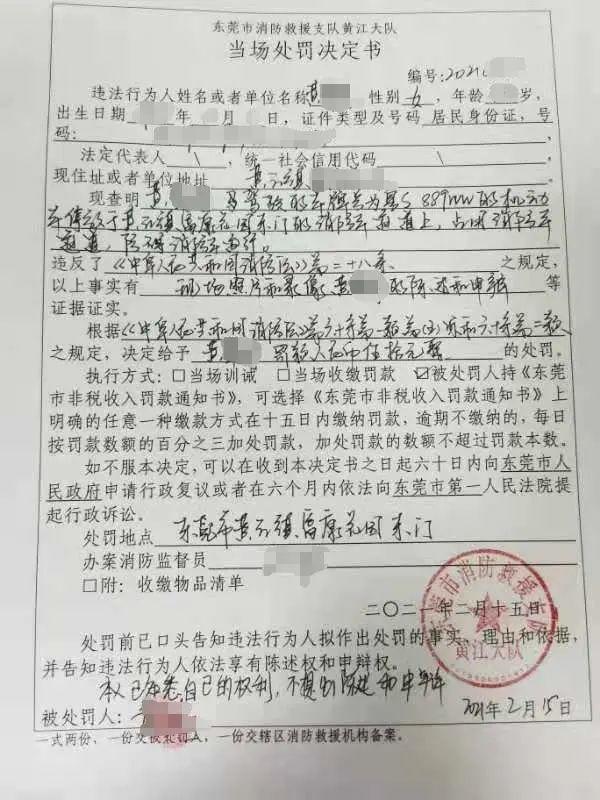 东莞市消防救援支队黄江大队
当场处罚决定书
编号:2021
违法行为人姓名或者单位名称 黄 性别 女,年龄 岁,
出生日期 年 月 日,证件类型及号码 居民身份证,号
码:
法定代表人 \ ,统一社会信用代码 \ ,
现住址或者单位地址 黄江镇
现查明 黄 驾驶的车牌号为粤S 889NW的机动
车停放于黄江镇富康花园东门的消防车通道上,占用消防车
通道,妨碍消防车通行。
违反了《中华人民共和国消防法》第二十八条 之规定,
以上事实有 现场照片和录像、黄 的陈述和申辩 等
证据证实。
根据《中华人民共和国消防法》第六十条第一款第(五)项和六十条第二款
之规定,决定给予 黄 罚款人民币伍拾元整 的处罚。
执行方式:☐当场训诫 ☐当场收缴罚款 ☑被处罚人持《东莞
市非税收入罚款通知书》,可选择《东莞市非税收入罚款通知书》上
明确的任意一种缴款方式在十五日内缴纳罚款,逾期不缴纳的,每日
按罚款数额的百分之三加处罚款,加处罚款的数额不超过罚款本数。
如不服本决定,可以在收到本决定书之日起六十日内向东莞市人
民政府申请行政复议或者在六个月内依法向东莞市第一人民法院提
起行政诉讼。
处罚地点 东莞市黄江镇富康花园东门
办案消防监督员
☐附:收缴物品清单
东莞市消防救援支队
黄江大队
二〇二一年二月十五日
处罚前已口头告知违法行为人拟作出处罚的事实、理由和依据,
并告知违法行为人依法享有陈述权和申辩权。
本人已知悉自己的权利,不提出陈述和申辩
被处罚人: 2021年2月15日
一式两份,一份交被处罚人,一份交辖区消防救援机构备案。